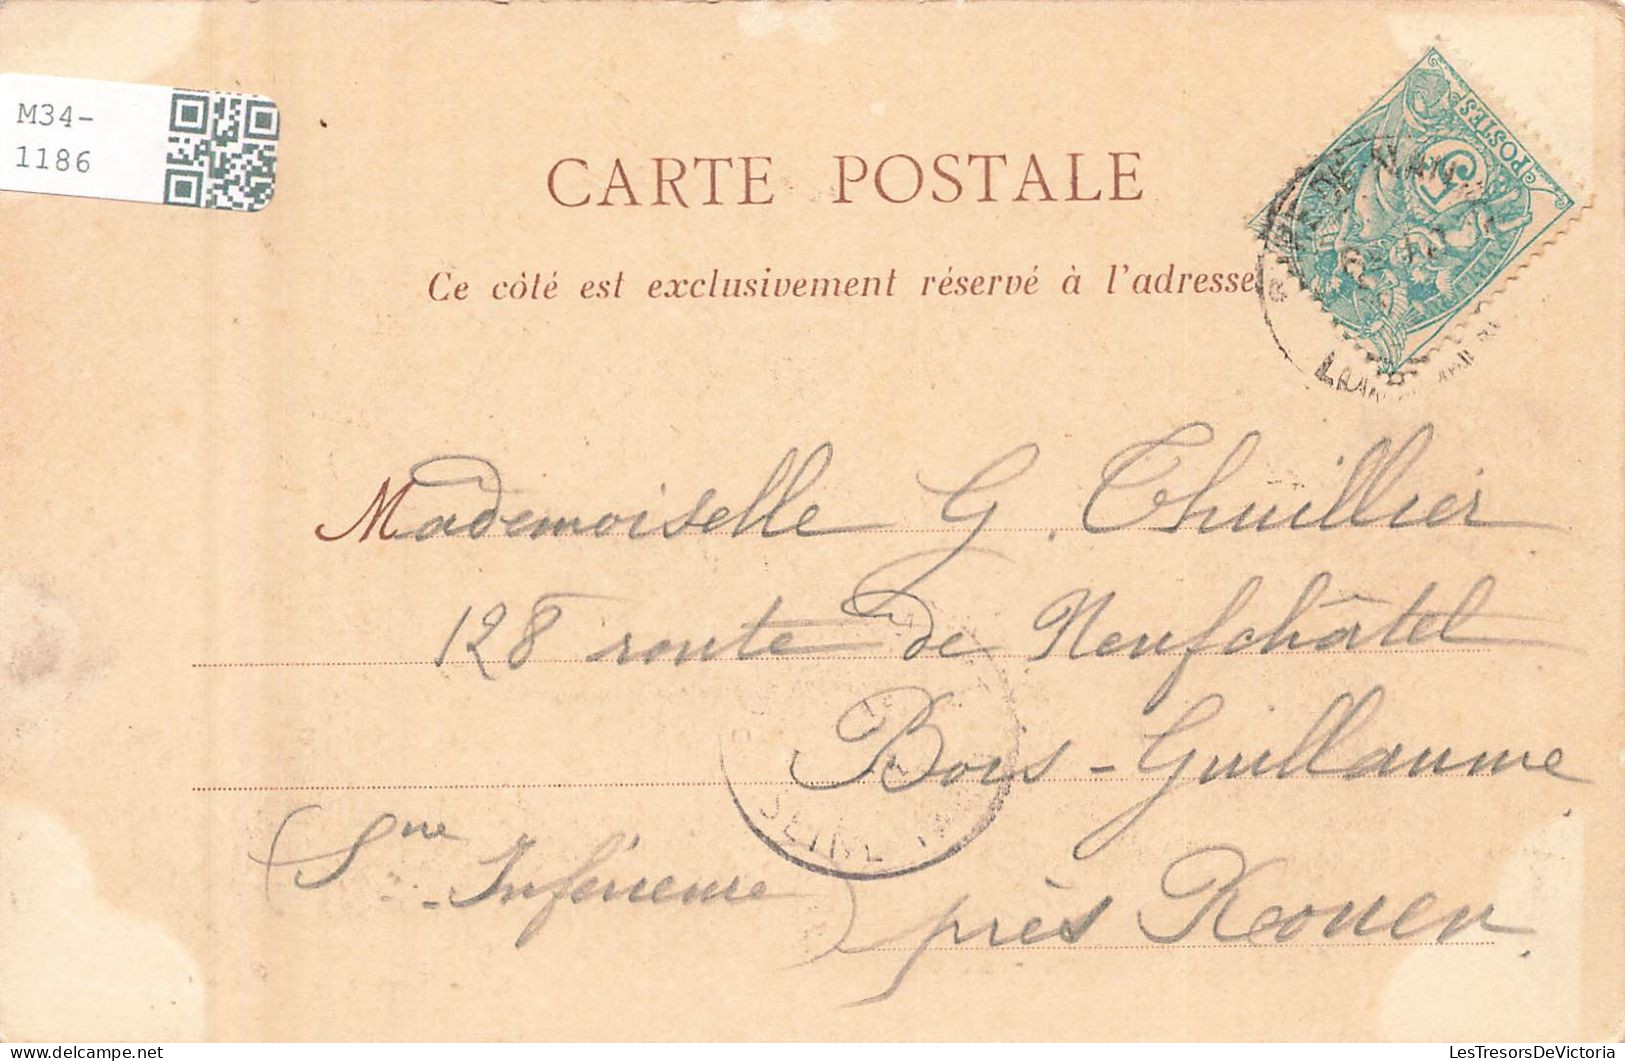 M34-
1186
CARTE POSTALE
Ce côté est exclusivement réservé à l'adresse
POSTES
5
Mademoiselle G. Thuillier
128 route de Neufchâtel
Bois-Guillaume
(Sne Inférieure)
près Rouen
SEINE
LesTresorsDeVictoria